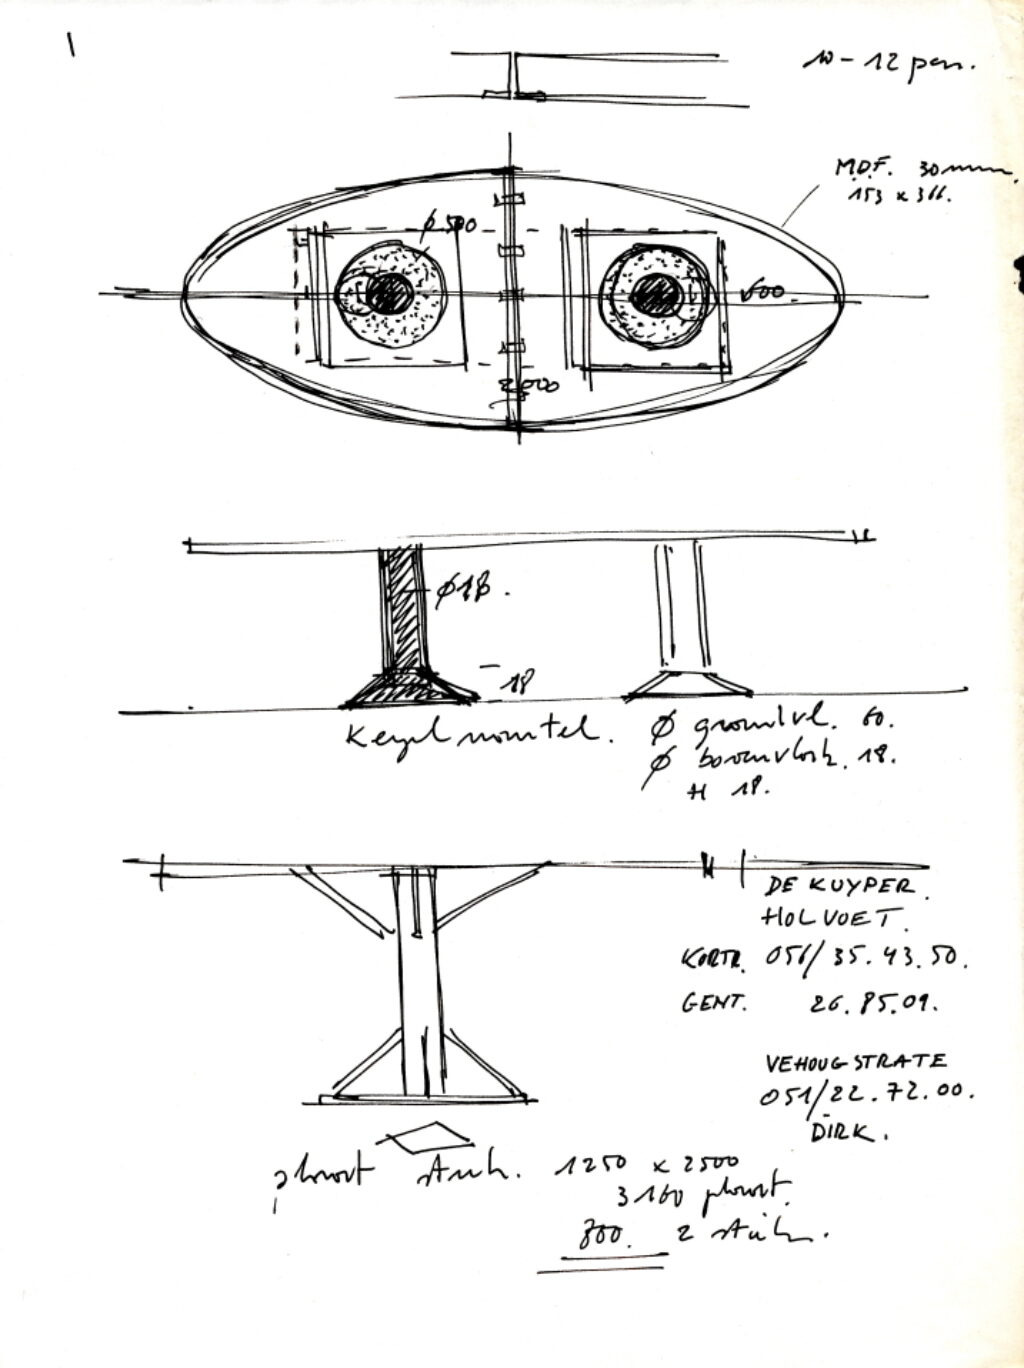 1
10 - 12 pers.
M.D.F. 30 mm.
153 x 366.
ϕ 500
600
ϕ 18.
18
Kegelmantel.
ϕ grondvl. 60.
ϕ bovenvlak. 18.
H 18.
DE KUYPER.
HOLVOET.
KORTR. 056/35.43.50.
GENT. 26.85.09.
VEHOUGSTRATE
051/22.72.00.
DIRK.
plaat stuk. 1250 x 2500
3160 plaat.
800. 2 stuks.